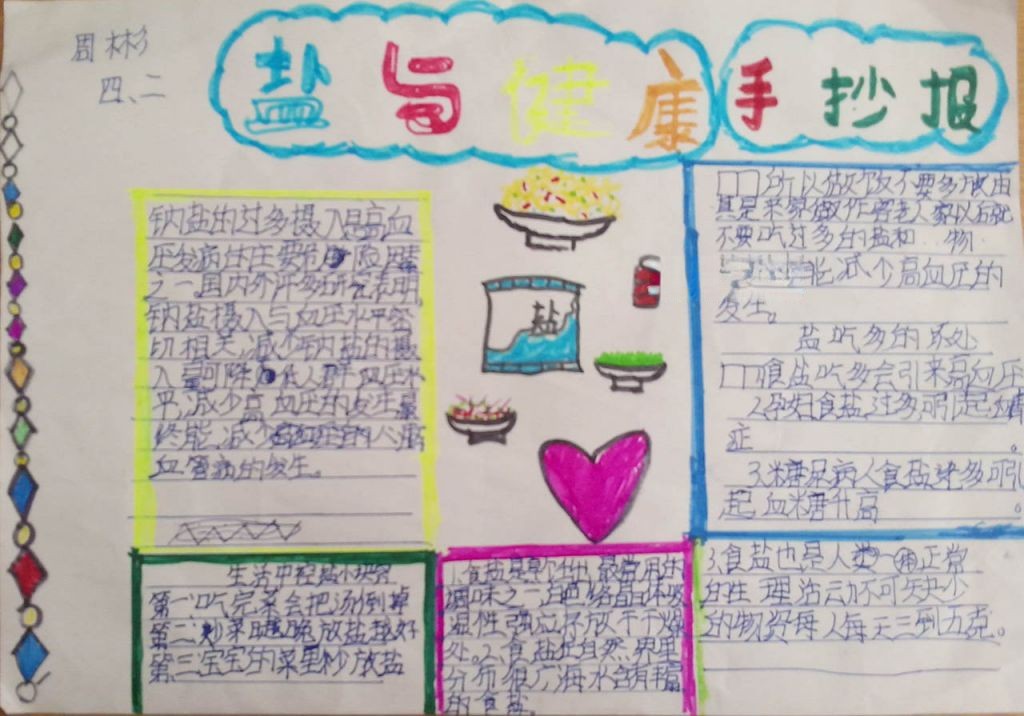 周彬
四、二
盐与健康手抄报
钠盐的过多摄入是高血
压发病的主要
之一国内外许多研究表明
钠盐摄入与血压水平密
切相关,减少钠盐的摄
入量可降低人群血压水
平,减少高血压的发生最
终能,减少高血压的心脑
血管病的发生。
盐
所以做饭不要多放油
其是
不要吃过多的盐和 物
能减少高血压的
发生。
盐吃多的坏处
食盐吃多会引来高血压
2.孕妇食盐过多引起
症。
3.糖尿病人食盐过多可引
起血糖升高。
生活中控盐小
第一吃完菜会把汤倒掉
第二炒菜越晚放盐越好
第三宝宝的菜里少放盐
1.食盐是 最常用的
调味之一
湿性强应存放于干燥
处。2.食盐在自然界里
分布很广海水含有丰富
的食盐。
3.食盐也是人类 正常
的生理活动不可缺少
的物资每人每天三到五克。